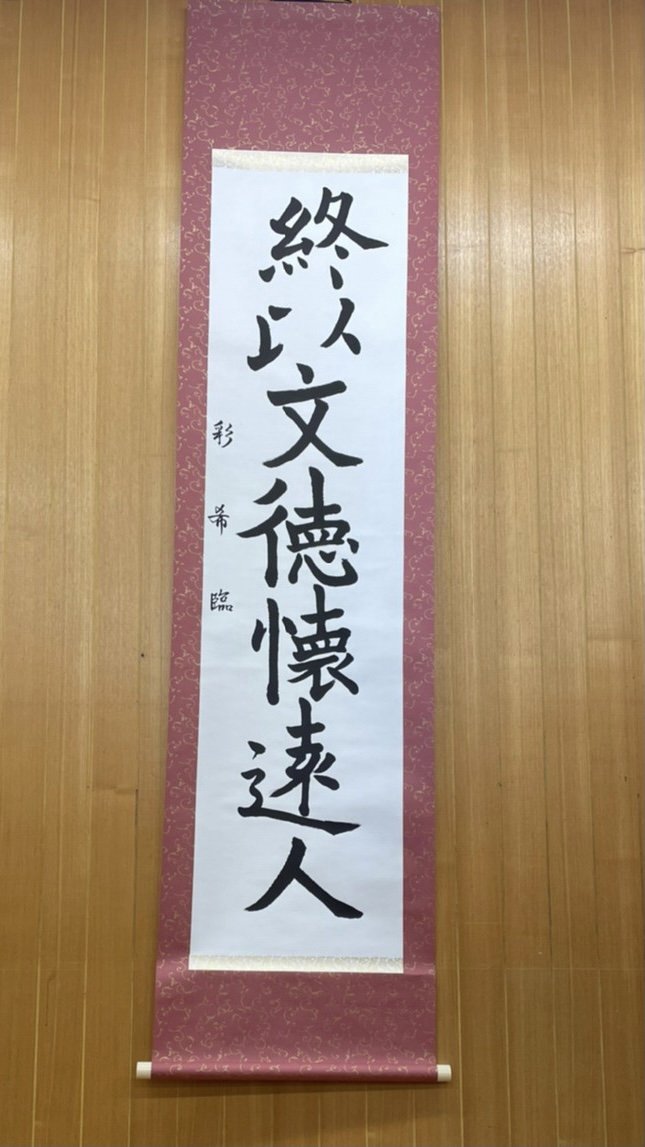 終以文徳懐遠人
彩希臨